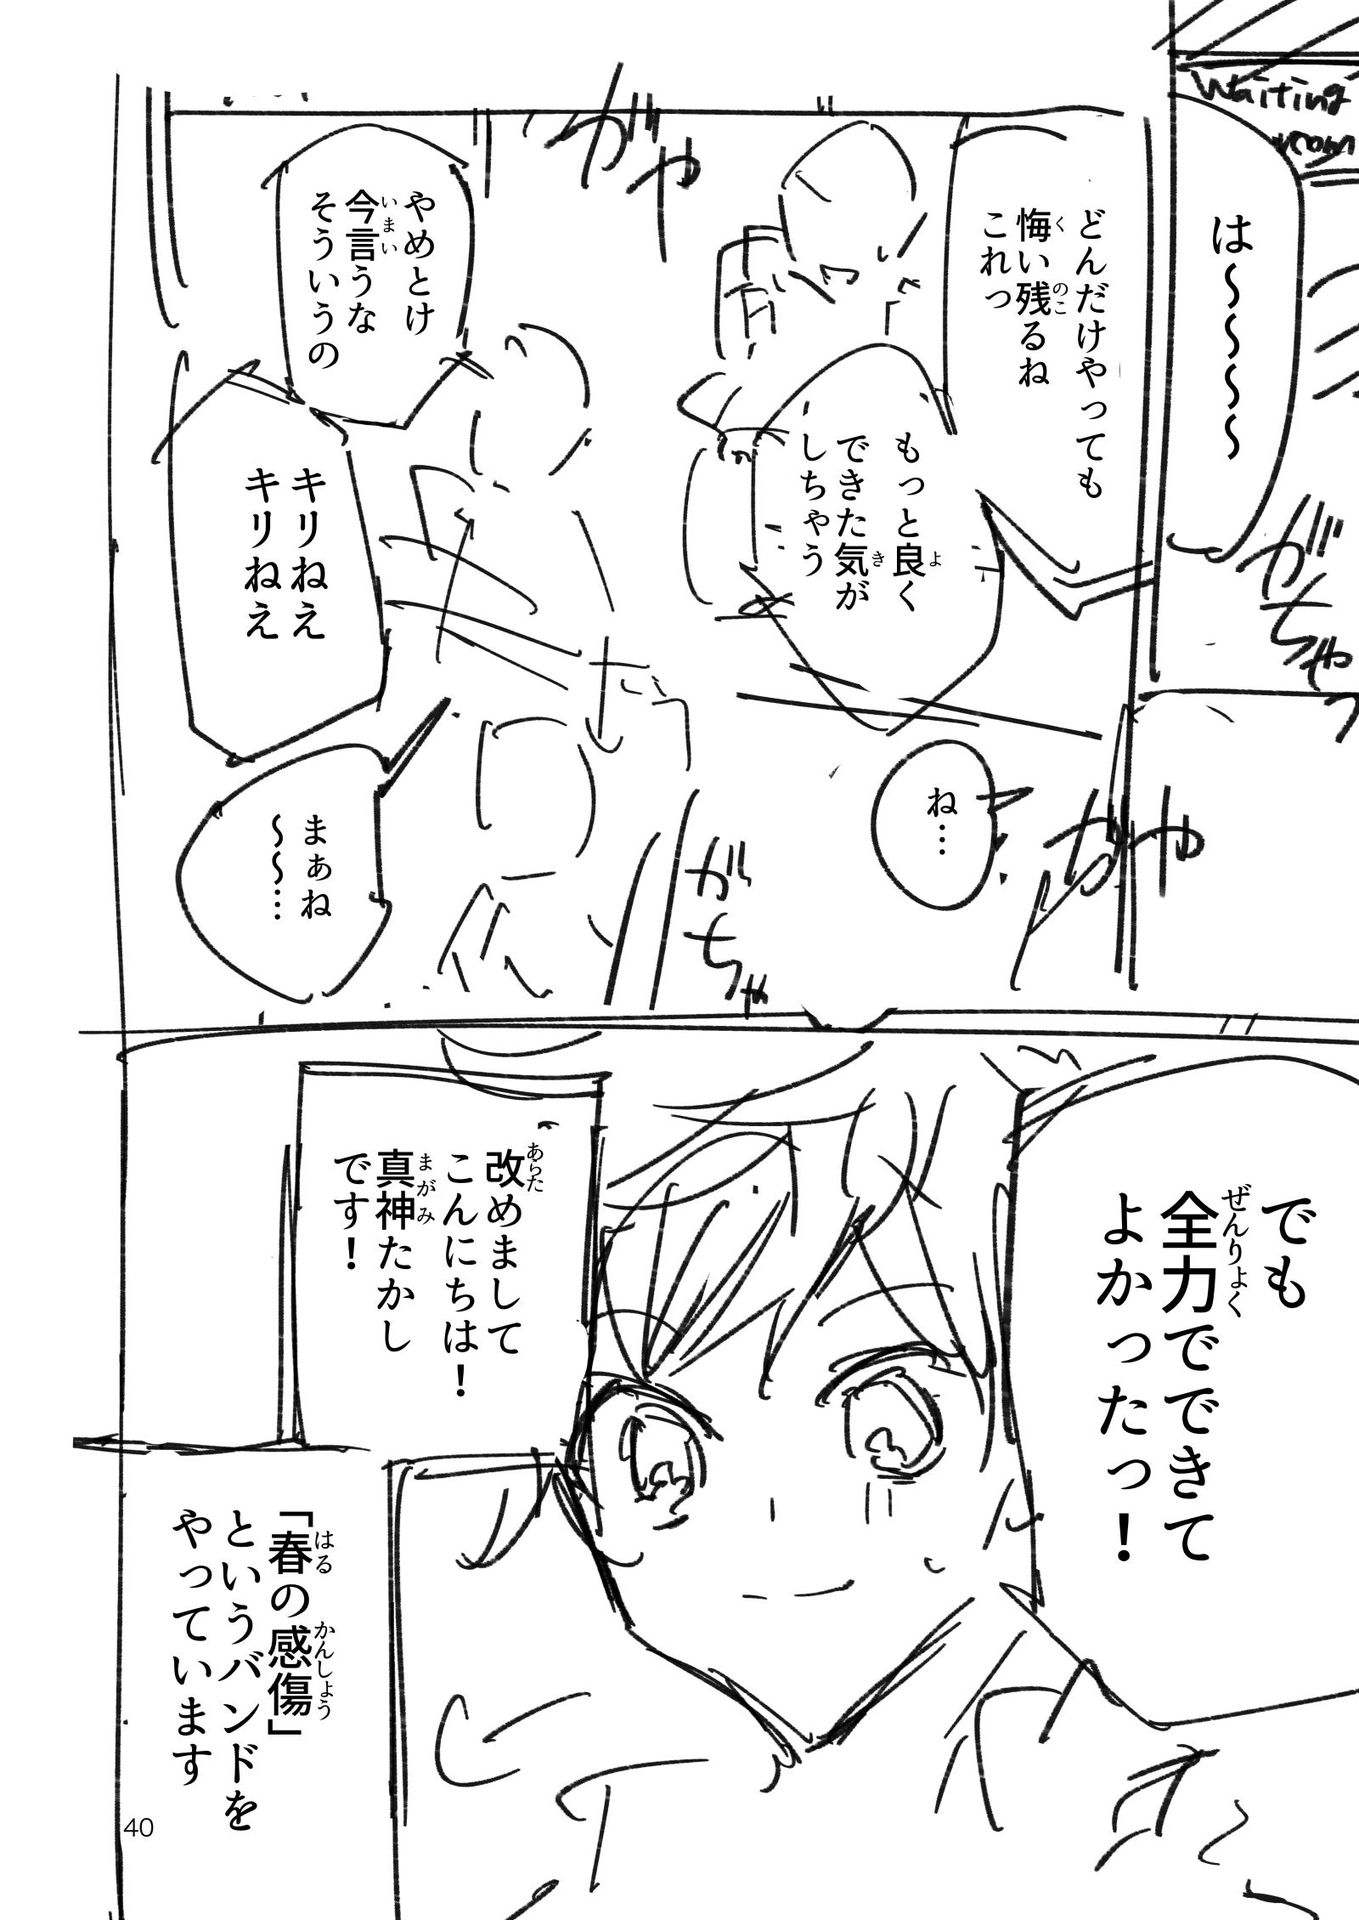 Waiting
room
は～～～～
ガちゃ
どんだけやっても
悔い残るね
これっ
もっと良く
できた気が
しちゃう
ね…
ガや
やめとけ
今言うな
そういうの
キリねえ
キリねえ
まぁね
～～…
ガちゃ
でも
全力でできて
よかったっ！
改めまして
こんにちは！
真神たかし
です！
「春の感傷」
というバンドを
やっています
40